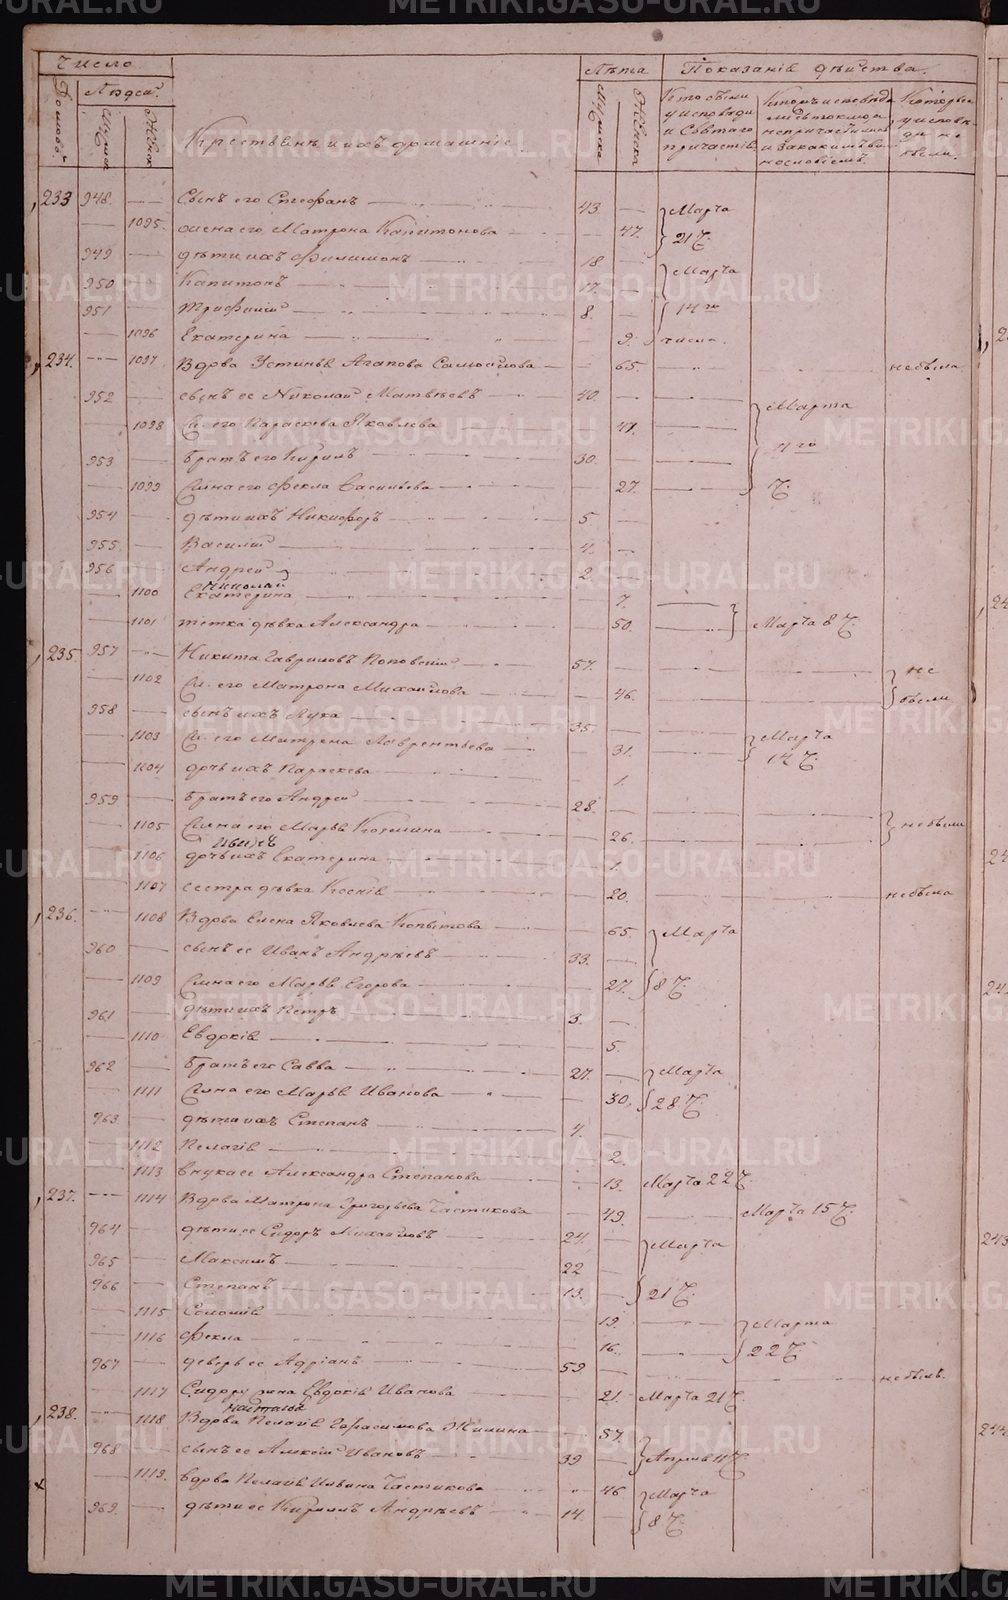 Число
Людей
Домовъ
Мужска
Женск
Крестьянъ и ихъ домашніе.
Лѣта
Мужска
Женска
Показаніе дѣйства.
Кто были
у исповѣди
и Святаго
причастія
Которые
у исповѣ
ди не
были.
233 948. Сынъ его Стефанъ 43. Марта
1095. жена его Матрона Капитонова 47. 21 Ч.
949 дѣти ихъ Филимонъ 18 Марта
950 Капитонъ 17.
951 Трифилій 8. 14 го
1096 Екатерина 9. числа.
234. 1097 Вдова Устинья Агапова Самойлова 65. не была
952 сынъ ее Николай Матвѣевъ 40. Марта
1098 Ж. его Параскева Яковлева 41.
953 Братъ его Кирилъ 30.
1099 Жена его Фекла Васильева 27. Ч.
954 дѣти ихъ Никифоръ 5
955 Василій 4.
956 Андрей 2.
Николай
1100 Екатерина 7.
1101 тетка дѣвка Александра 50. Марта 8 Ч.
235. 957 Никита Гавриловъ Поповскій 57. не
1102 Ж. его Матрона Михайлова 46. были
958 сынъ ихъ Лука 35. Марта
1103 Ж. его Матрена Лаврентьева 31. 14 Ч.
1104 дочь ихъ Параскева 1.
959 Братъ его Андрей 28.
1105 Жена его Марья Козмина 26. не были
1106 дочь ихъ Екатерина 1.
1107 сестра дѣвка Ксенія 20. не была
236. 1108 Вдова Елена Яковлева Копытова 65. Марта
960 сынъ ее Иванъ Андрѣевъ 33.
1109 Жена его Марья Егорова 27. 8 Ч.
961 дѣти ихъ Петръ 3.
1110 Евдокія 5.
962 Братъ его Савва 27. Марта
1111 Жена его Марья Иванова 30. 28 Ч.
963 дѣти ихъ Степанъ 4.
1112 Пелагія 2.
1113 внука ее Александра Степанова 13. Марта 22 Ч.
237. 1114 Вдова Матрона Григорьева Частикова 49. Марта 15 Ч.
964 дѣти ее Сидоръ Михайловъ 24. Марта
965 Максимъ 22
966 Степанъ 13. 21 Ч.
1115 Соломія 19. Марта
1116 Фекла 16. 22 Ч.
967 деверь ее Адріанъ 59. не былъ.
1117 Сидору жена Евдокія Иванова 21. Марта 21 Ч.
238. 1118 Вдова Пелагія Гарасимова Жилина 57.
968 сынъ ее Алексѣй Ивановъ 39 Апрѣля 11 Ч.
1119. вдова Пелагія Ильина Частикова 46 Марта
969. дѣти ее Кирилъ Андрѣевъ 14. 8 Ч.
METRIKI.GASO-URAL.RU